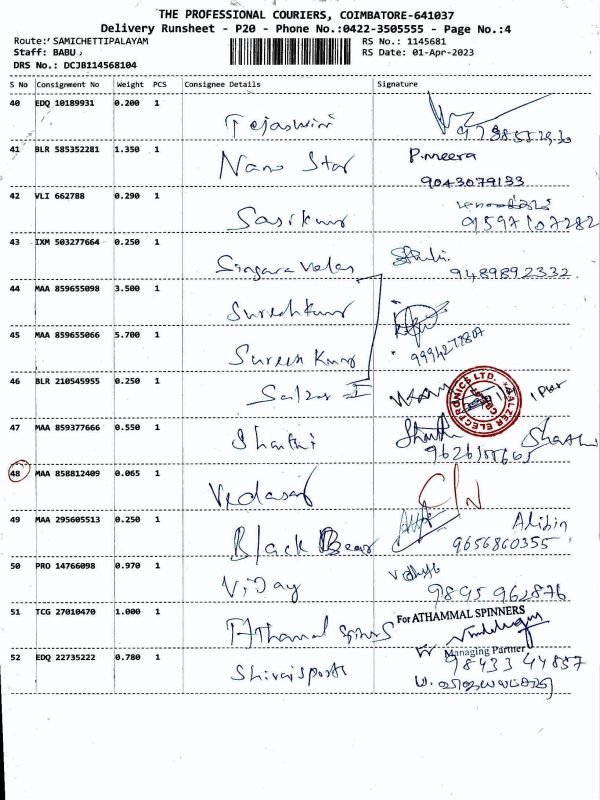 THE PROFESSIONAL COURIERS, COIMBATORE-641037
Delivery Runsheet - P20 - Phone No.:0422-3505555 - Page No.:4
Route: SAMICHETTIPALAYAM RS No.: 1145681
Staff: BABU RS Date: 01-Apr-2023
DRS No.: DCJB114568104
S No Consignment No Weight PCS Consignee Details Signature
40 EDQ 10189931 0.200 1 Tejaswini
41 BLR 585352281 1.350 1 Nano Star P.meera
9043079133
42 VLI 662788 0.290 1 Sasikumr
9597107282
43 IXM 503277664 0.250 1 Singaravelan
9489892332
44 MAA 859655098 3.500 1 Sureshkumr
45 MAA 859655066 5.700 1 Suresh Kumr
46 BLR 210545955 0.250 1 Salzer I
SALZER ELECTRONICS LTD.
47 MAA 859377666 0.550 1 Shanthi
48 MAA 858812409 0.065 1
49 MAA 295605513 0.250 1 Black Bear Alibin
9656860355
50 PRO 14766098 0.970 1 Vijay
9895962876
51 TCG 27010470 1.000 1 Athammal spinrs For ATHAMMAL SPINNERS
Managing Partner
52 EDQ 22735222 0.780 1 9843344857